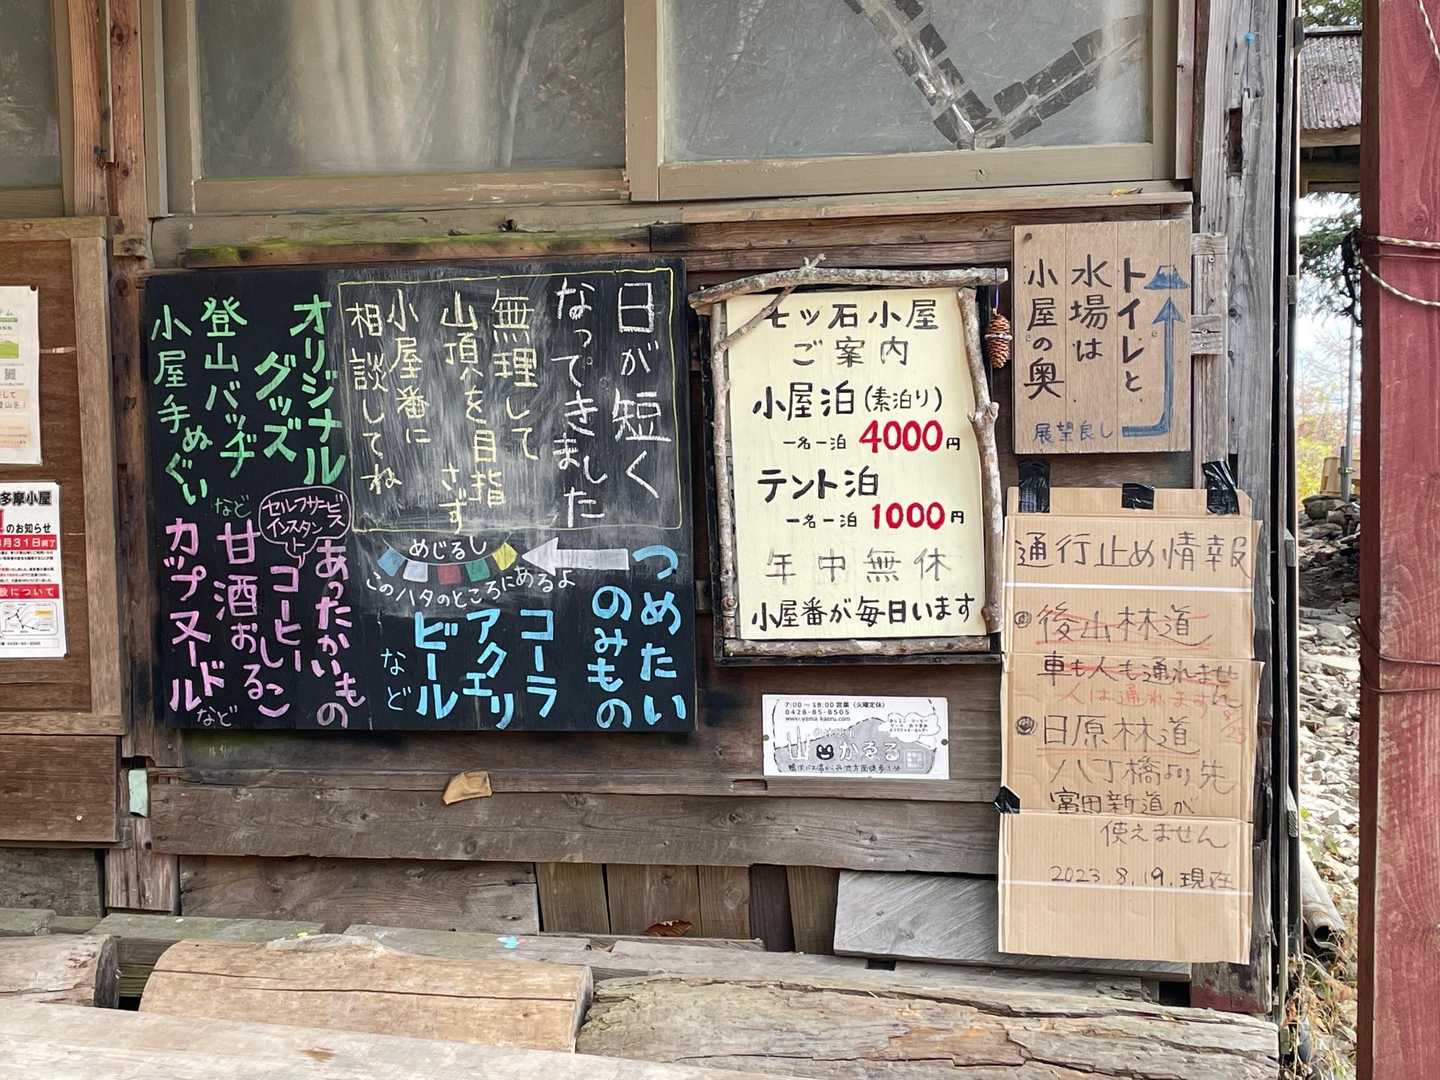 日が短く
なってきました
無理して
山頂を目指
さず
小屋番に
相談してね
オリジナル
グッズ
登山バッヂ
小屋手ぬぐい
など
めじるし
このハタのところにあるよ
つめたい
のみもの
コーラ
アクエリ
ビール
など
セルフサービス
インスタント
あったかいもの
コーヒー
おしるこ
甘酒
カップヌードル
など
七ッ石小屋
ご案内
小屋泊(素泊り)
一名一泊 4000円
テント泊
一名一泊 1000円
年中無休
小屋番が毎日います
トイレと、
水場は
小屋の奥
展望良し
通行止め情報
後山林道
車も人も通れません
人は通れます
日原林道
八丁橋より先
富田新道が
使えません
2023.8.19.現在
7:00〜18:00営業(火曜定休)
0428-85-8505
www.yama-kaeru.com
山かゑる
多摩小屋
のお知らせ
月31日終了
設について